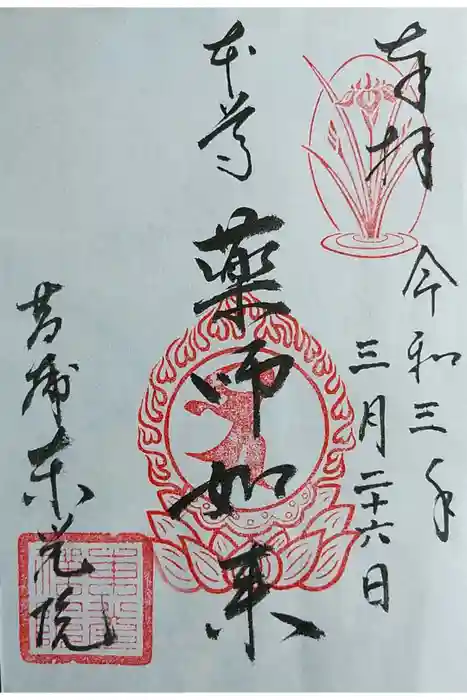 奉拝
令和三年
三月二十六日
本尊
薬師如来
菖蒲
東光院